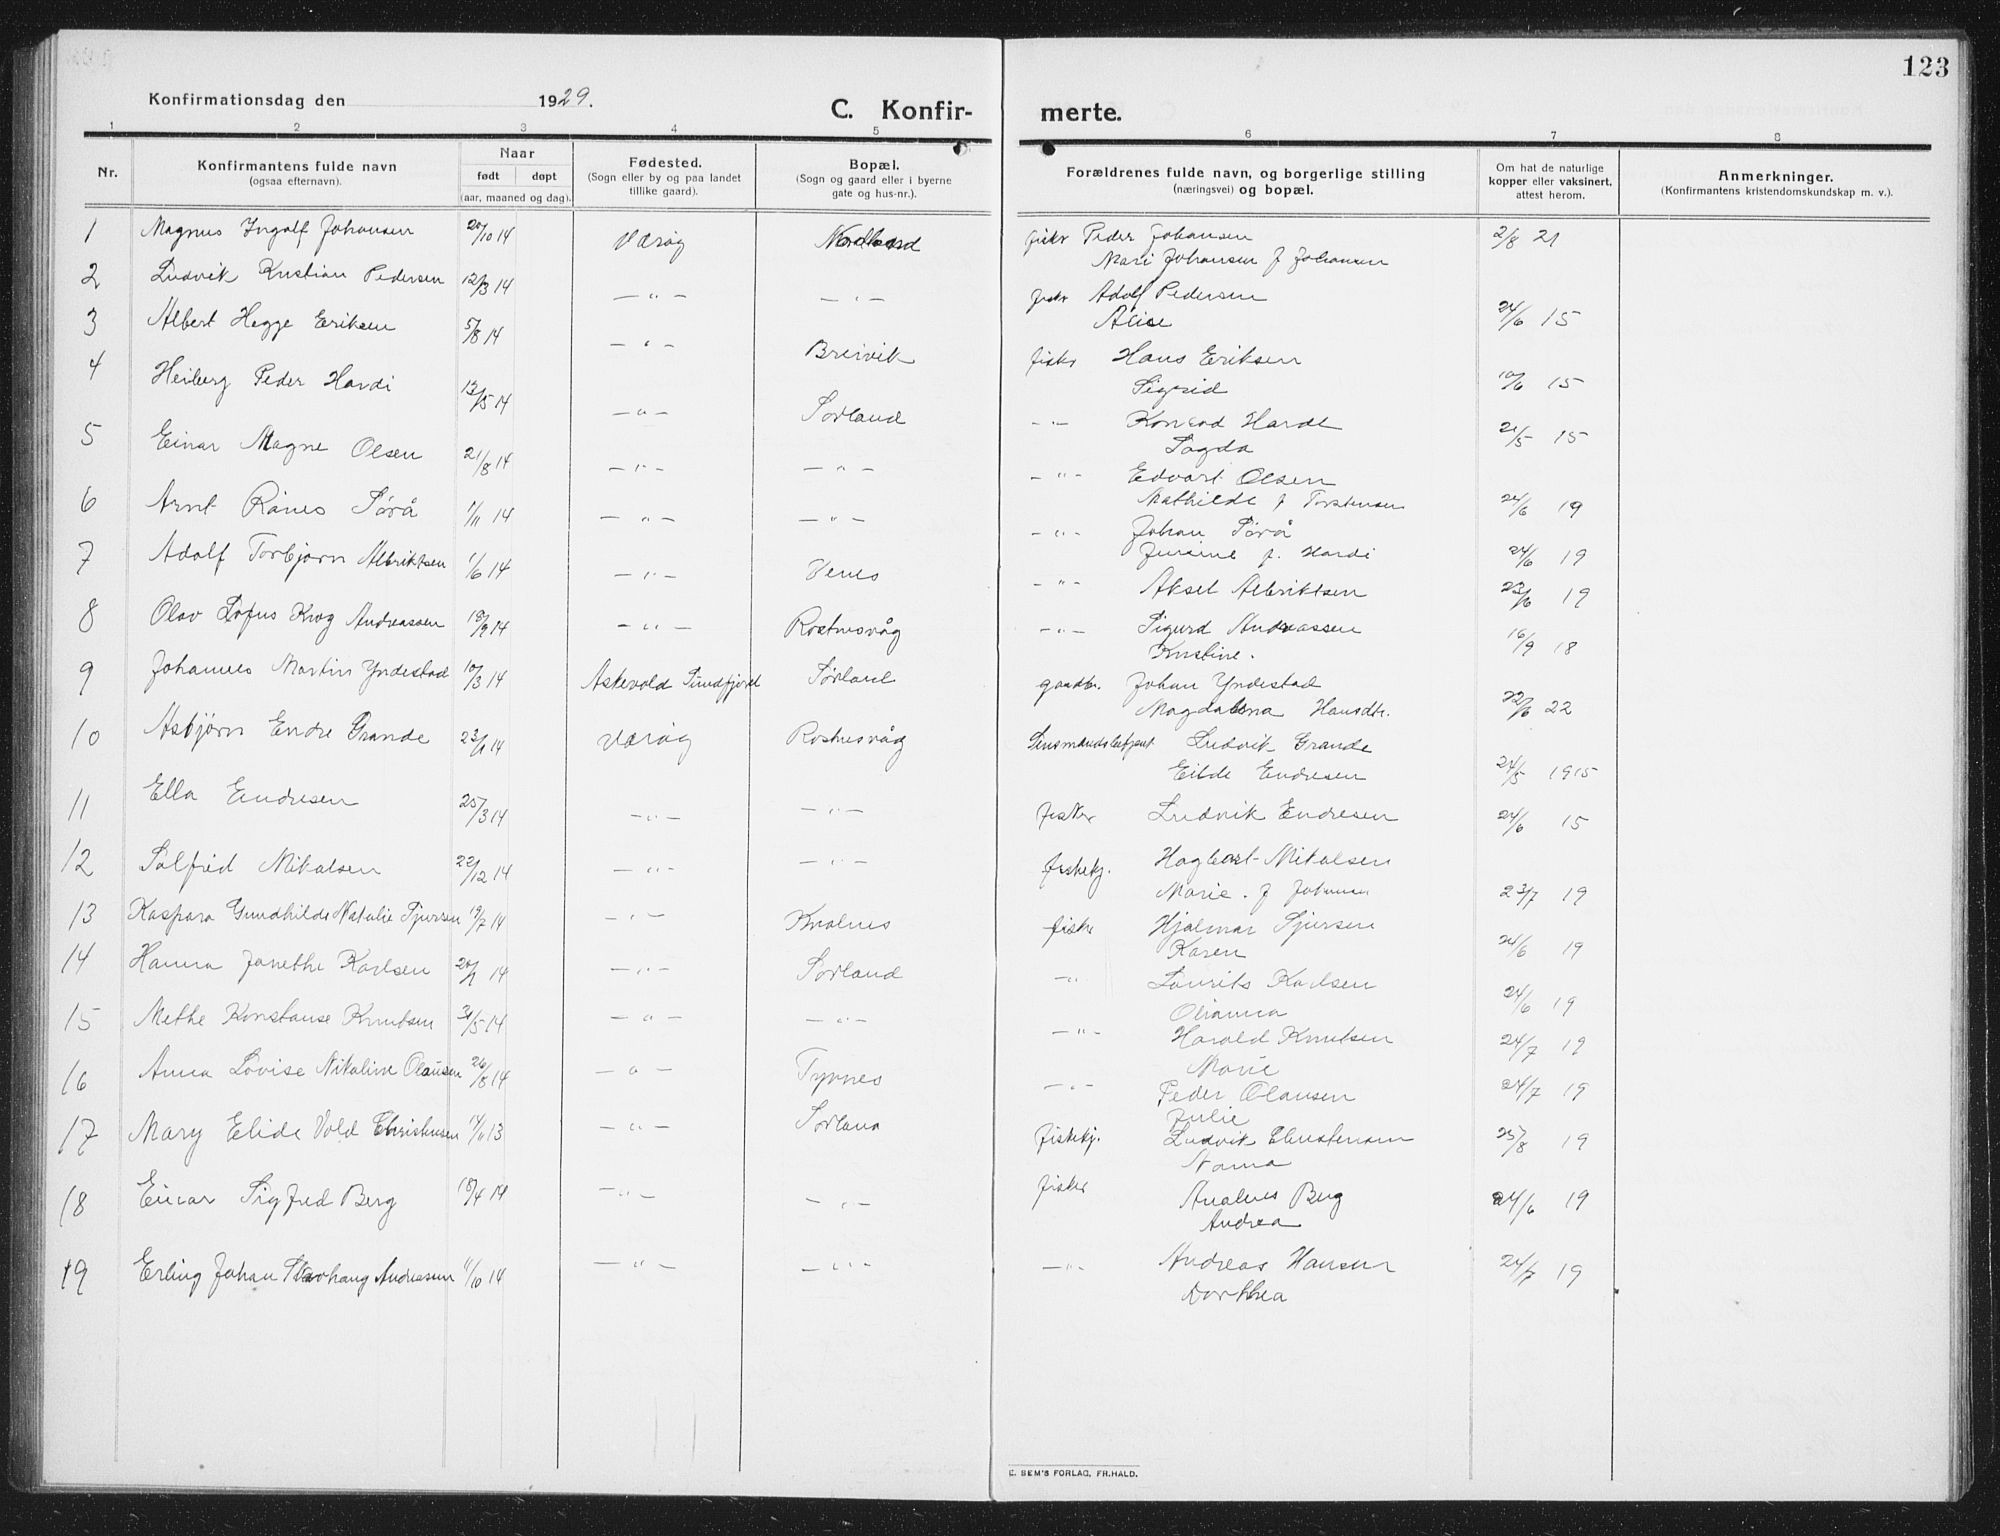 123
Konfirmationsdag den 1929.
C. Konfir- merte.
1 2 3 4 5 6 7 8
Nr.
Konfirmantens fulde navn
(ogsaa efternavn).
Naar
født døpt
(aar, maaned og dag).
Fødested.
(Sogn eller by og paa landet
tillike gaard).
Bopæl.
(Sogn og gaard eller i byerne
gate og hus-nr.).
Forældrenes fulde navn, og borgerlige stilling
(næringsvei) og bopæl.
Om hat de naturlige
kopper eller vaksinert,
attest herom.
Anmerkninger.
(Konfirmantens kristendomskundskap m. v.).
1 Magnus Ingolf Johansen 20/10 14 Værøy Nordland fiskr Peder Johansen 2/8 21
Mari Johansen f Johansen
2 Ludvik Kristian Pedersen 12/3 14 — " — — " — fiskr Adolf Pedersen
Alice 24/6 15
3 Albert Hegge Eriksen 5/8 14 — " — Breivik fiskr Hans Eriksen
Sigrid 10/6 15
4 Heiberg Peder Hardi 13/5 14 — " — Sørland — " — Konrad Hardi
Sagda 21/5 15
5 Einar Magne Olsen 21/8 14 — " — — " — — " — Edvart Olsen
Mathilde f Torstensen 24/6 19
6 Arnt Rånes Sørå 1/11 14 — " — — " — — " — Johan Sørå
Jursine f. Hardi 24/6 19
7 Adolf Torbjørn Albriktsen 1/6 14 — " — Venes — " — Aksel Albriktsen 23/6 19
8 Olav Lofus Krog Andreassen 18/9 14 — " — Røstnesvåg — " — Sigurd Andreassen
Kristine. 16/9 18
9 Johannes Martin Yndestad 10/3 14 Askevold Sundfjord Sørland gaardbr. Johan Yndestad
Magdalena Hansdtr. 22/6 22
10 Asbjørn Endre Grande 23/1 14 Værøy Røstnesvåg Lensmandsbetjent Ludvik Grande
Eilde Endresen 24/5 1915
11 Ella Endresen 25/3 14 — " — — " — fisker Ludvik Endresen 24/6 15
12 Solfrid Nikalsen 22/12 14 — " — — " — fiskekj. Hagbart Nikalsen
Marie. f Johansen 23/7 19
13 Kaspara Gundhilde Natalie Sjursen 19/7 14 — " — Kvalnes fiske Hjalmar Sjursen
Karen 24/6 19
14 Hanna Janethe Karlsen 20/1 14 — " — Sørland — " — Laurits Karlsen
Olianna 24/6 19
15 Methe Konstanse Knutsen 31/5 14 — " — — " — — " — Harald Knutsen
Marie 24/7 19
16 Anna Lovise Nikoline Olausen 26/8 14 — " — Tyvnes — " — Peder Olausen 24/7 19
Julie
17 Mary Elide Vold Christensen 14/11 13 — " — Sørland fiskekj. Ludvik Christensen 25/8 19
Nanna
18 Einar Sigfred Berg 18/4 14 — " — — " — fisker Analius Berg 24/6 19
Andrea
19 Erling Johan Stavhaug Andreasen 11/10 14 — " — — " — — " — Andreas Hansen 24/7 19
Dorthea
E. SEM'S FORLAG, FR.HALD.